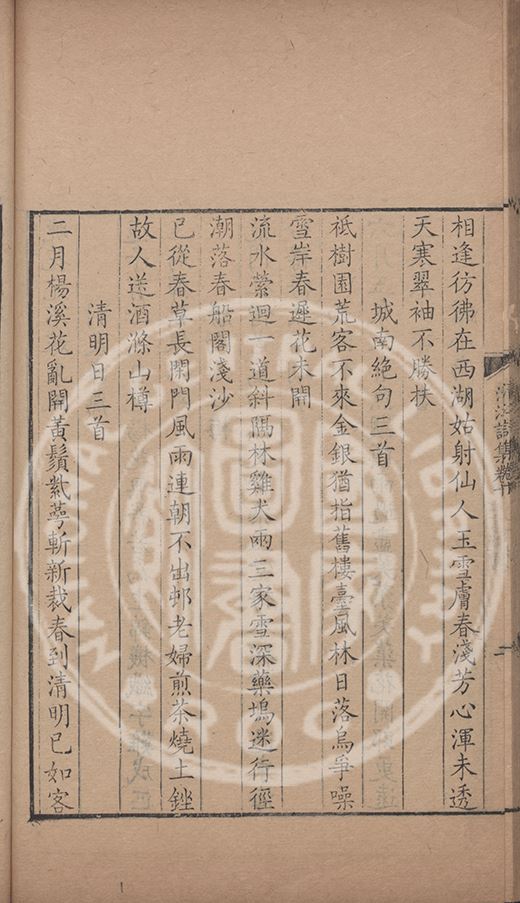 相逢彷彿在西湖姑射仙人玉雪膚春淺芳心渾未透
天寒翠袖不勝扶
城南絶句三首
祇樹園荒客不來金銀猶指舊樓臺風林日落烏爭噪
雪岸春遲花未開
流水縈迴一道斜隔林雞犬兩三家雪深藥塢迷行徑
潮落春船閣淺沙
已從春草長閑門風雨連朝不出邨老婦煎茶燒土銼
故人送酒滌山樽
清明日三首
二月楊溪花亂開黃鬚紫萼斬新裁春到清明已如客
詩集卷十